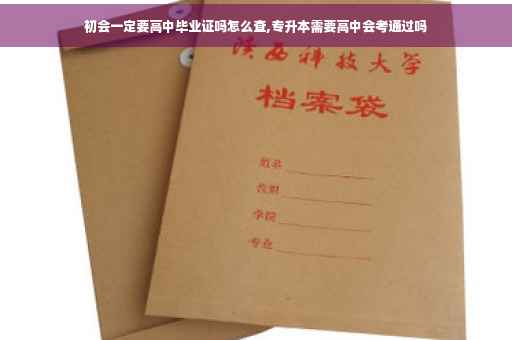 初会一定要高中毕业证吗怎么查,专升本需要高中会考通过吗
陕西科技大学
档案袋
姓名
学院
专业